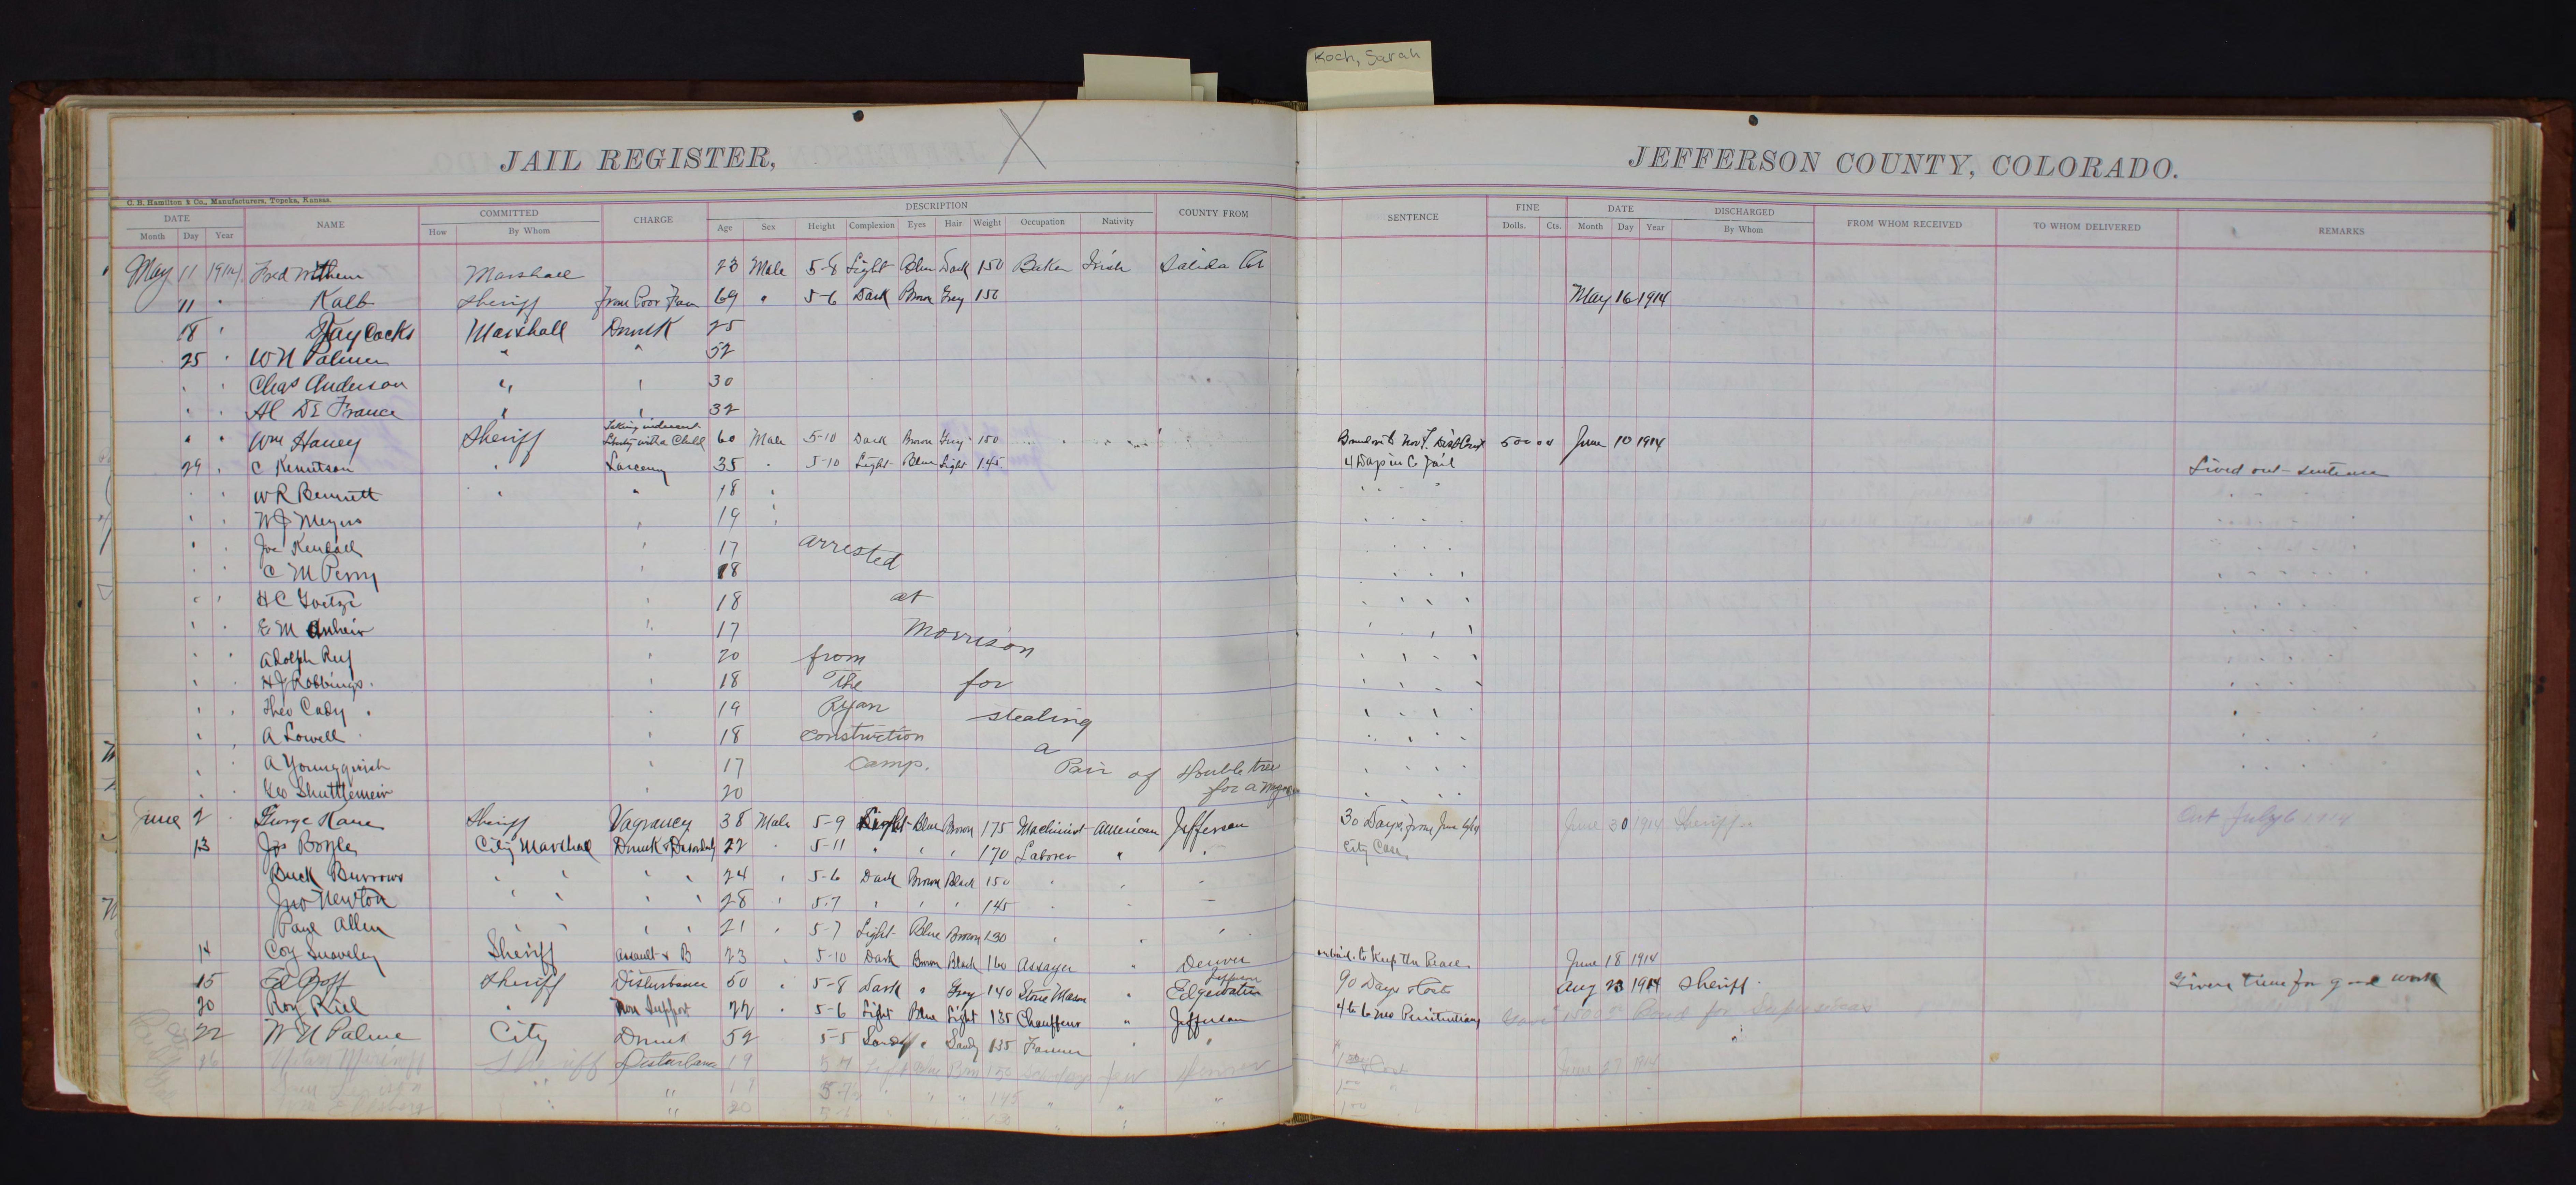 Koch, Sarah
JAIL REGISTER, JEFFERSON COUNTY, COLORADO.
C. B. Hamilton & Co., Manufacturers, Topeka, Kansas.
DATE NAME COMMITTED CHARGE DESCRIPTION COUNTY FROM SENTENCE FINE DATE DISCHARGED FROM WHOM RECEIVED TO WHOM DELIVERED REMARKS
Month Day Year How By Whom Age Sex Height Complexion Eyes Hair Weight Occupation Nativity Dolls. Cts. Month Day Year By Whom
May 11 1914 Fred Marshall 23 Male 5-8 Light Blue Dark 150 Baker Irish Salida
11 " Kalb Sheriff from Poor Farm 69 " 5-6 Dark Brown Grey 150 May 16 1914
18 " Jay Cocks Marshall Drunk 25
25 " W N Palmer " " 52
" " Chas Anderson " " 30
" " Al De France " " 32
" " Wm Haney Sheriff Taking indecent Liberty with a Child 60 Male 5-10 Dark Brown Grey 150 500 00 June 10 1914
29 " C Knutson " Larceny 35 " 5-10 Light Blue Light 145 4 Days in Co Jail Lived out sentence
" " W R Bennett " " 18 " " " " " " " "
" " W J Meyers " 19 " " " " " " " "
" " Joe Kendall " 17 arrested " " " " " " "
" " C M Perry " 18 " " " " " " "
" " H C Goetze " 18 at " " " " " " "
" " E M " 17 Morrison " " " " " " "
" " Adolph Ruf " 20 from " " " " " " "
" " H J Robbings " 18 The for " " " " " " "
" " Theo Cady " 19 Ryan stealing " " " " " " "
" " A Lowell " 18 construction a " " " " " " "
" " A Youngquist " 17 Camp. Pair of Double tree " " " " " " "
" " Geo " 20 for a " " " "
June 2 " George Kane Sheriff Vagrancy 38 Male 5-9 Light Blue Brown 175 Machinist American Jefferson 30 Days from June June 30 1914 Sheriff Out July 6 1914
13 Jas Boyle City Marshal Drunk & Disorderly 22 " 5-11 " " " 170 Laborer " " City Case
Buck Burrows " " " " 24 " 5-6 Dark Brown Black 150 " " "
Jno Newton " " " " 28 " 5-7 " " " 145 " " "
Paul Allen " " " " 21 " 5-7 Light Blue Brown 130 " " "
14 Coy Snaveley Sheriff Assault & B 23 " 5-10 Dark Brown Black 160 Assayer " Denver to Keep the Peace June 18 1914
15 Ed Goff Sheriff Disturbance 50 " 5-8 Dark " Grey 140 Stone Mason " Edgewater 90 Days & Costs Aug 23 1914 Sheriff Given time for good work
20 Roy Riel " Non Support 22 " 5-6 Light Blue Light 135 Chauffeur " Jefferson 4 to 6 mo Penitentiary Bond for
22 W N Palmer City Drunk 52 5-5 Sandy " Sandy 135 Farmer " "
26 Sheriff Disturbance 19 Light Blue Brn 150 Denver June 27 1914
" " 145 " " "
" " 20 " " "